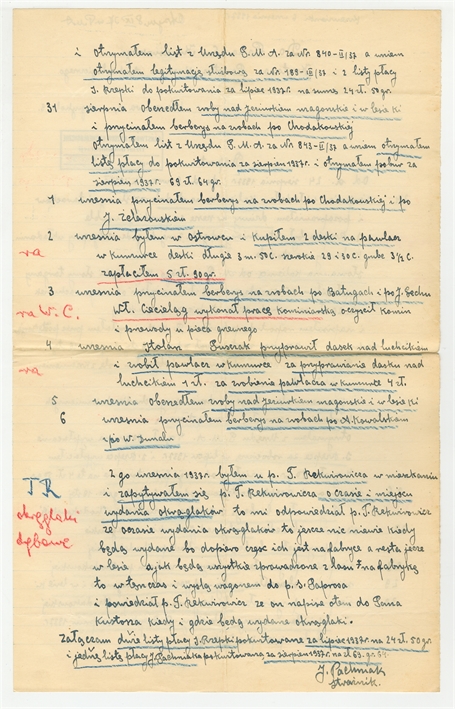 i otrzymałem list z Urzędu P.M.A. za Nr. 840-II/37 a w niem
otrzymałem legitymację służbową za Nr. 189-III/37 i 2 listy płacy
J. Rzepki do pokwitowania za lipiec 1937r. na sumę 24 zł. 50gr
31 sierpnia obeszedłem wroby nad jeziurkiem magorskie i w lesie ki
i przycinałem berberys na wrobach po Chodakowskiej
otrzymałem list z Urzędu P.M.A. za Nr 843-II/37 a w niem otrzymałem
listę płacy do pokwitowania za sierpień 1937r. i otrzymałem pobur za
sierpień 1937r. 69 zł. 64 gr.
1 wrzesnia przycinałem berberys na wrobach po Chodakowskiej i po
J.
2 wrzesnia byłem w Ostrowcu i kupiłem 2 deski na pawlacz
na w kumurce deski długie 3 m. 50 C. szerokie 29 i 30 C. grube 3½ C.
zapłaciłem 5 zł. 90gr.
3 wrzesnia przycinałem berberys na wrobach po Batugach i po J. Sechu
na W.C. Wł. Cieciląg wykonał pracę kominiarską oczyścił komin
i przewody u pieca
4 wrzesnia Stolarz przyprawił dasek nad luchcikiem
na i zrobił pawlacz w kumurce za przyprawianie dasku nad
luchcikiem 1 zł. za zrobienie pawlacza w kumurce 4 zł.
5 wrzesnia obeszedłem wroby nad jeziurkiem magorskie i w lesie ki
6 wrzesnia przycinałem berberys na wrobach po A. Kowalskim
i po W.
2 go wrzesnia 1937r. byłem u p. T. Rekwirowicza w mieszkaniu
TR i zapytywałem się p. T. Rekwirowicza o czasie i miejscu
okrąglaki wydania okrąglaków to mi odpowiedział p. T. Rekwirowicz
dębowe że o czasie wydania okrąglaków to jeszcze nic niewie kiedy
będą wydane bo dopiero część ich jest na fabryce a resta jeszce
w lesie a jak będą wszystkie sprowadzone z lasu na fabrykę
to w tęn czas i wyślą wagonem do p. S. Paprosa
i powiedział p. T. Rekwirowicz że on napisze o tem do Pana
Kustorza kiedy i gdzie będą wydane okrąglaki.
Załączam dwie listy płacy J. Rzepki pokwitowane za lipiec 1937r. na 24 zł. 50gr
i jedną listę płacy J. Pachniaka pokwitowaną za sierpień 1937r. na zł 69. gr. 64.
J. Pachniak
strażnik.